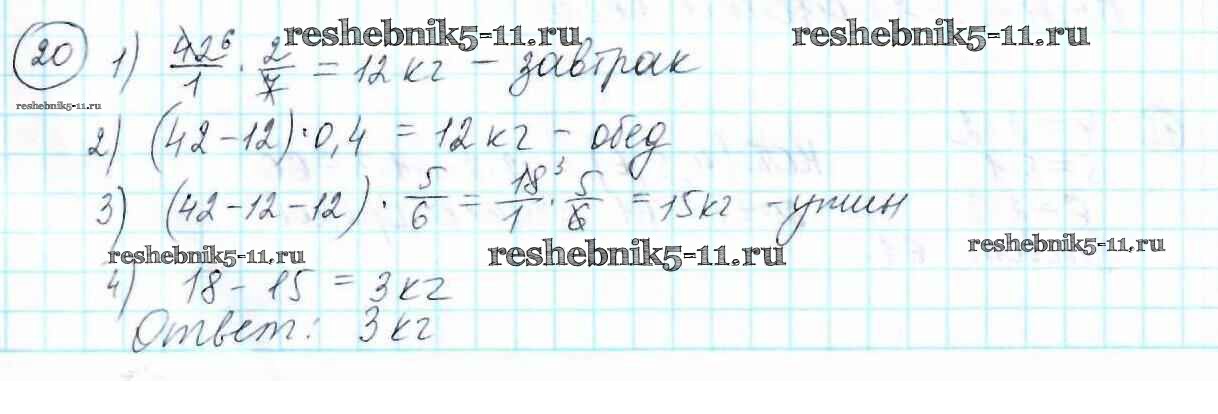 reshebnik5-11.ru reshebnik5-11.ru
20 1) 42⁶/1 · 2/7 = 12 кг – завтрак
reshebnik5-11.ru
2) (42 – 12) · 0,4 = 12 кг – обед
3) (42 – 12 – 12) · 5/6 = 18³/1 · 5/6 = 15 кг – ужин
reshebnik5-11.ru reshebnik5-11.ru reshebnik5-11.ru
4) 18 – 15 = 3 кг
Ответ: 3 кг